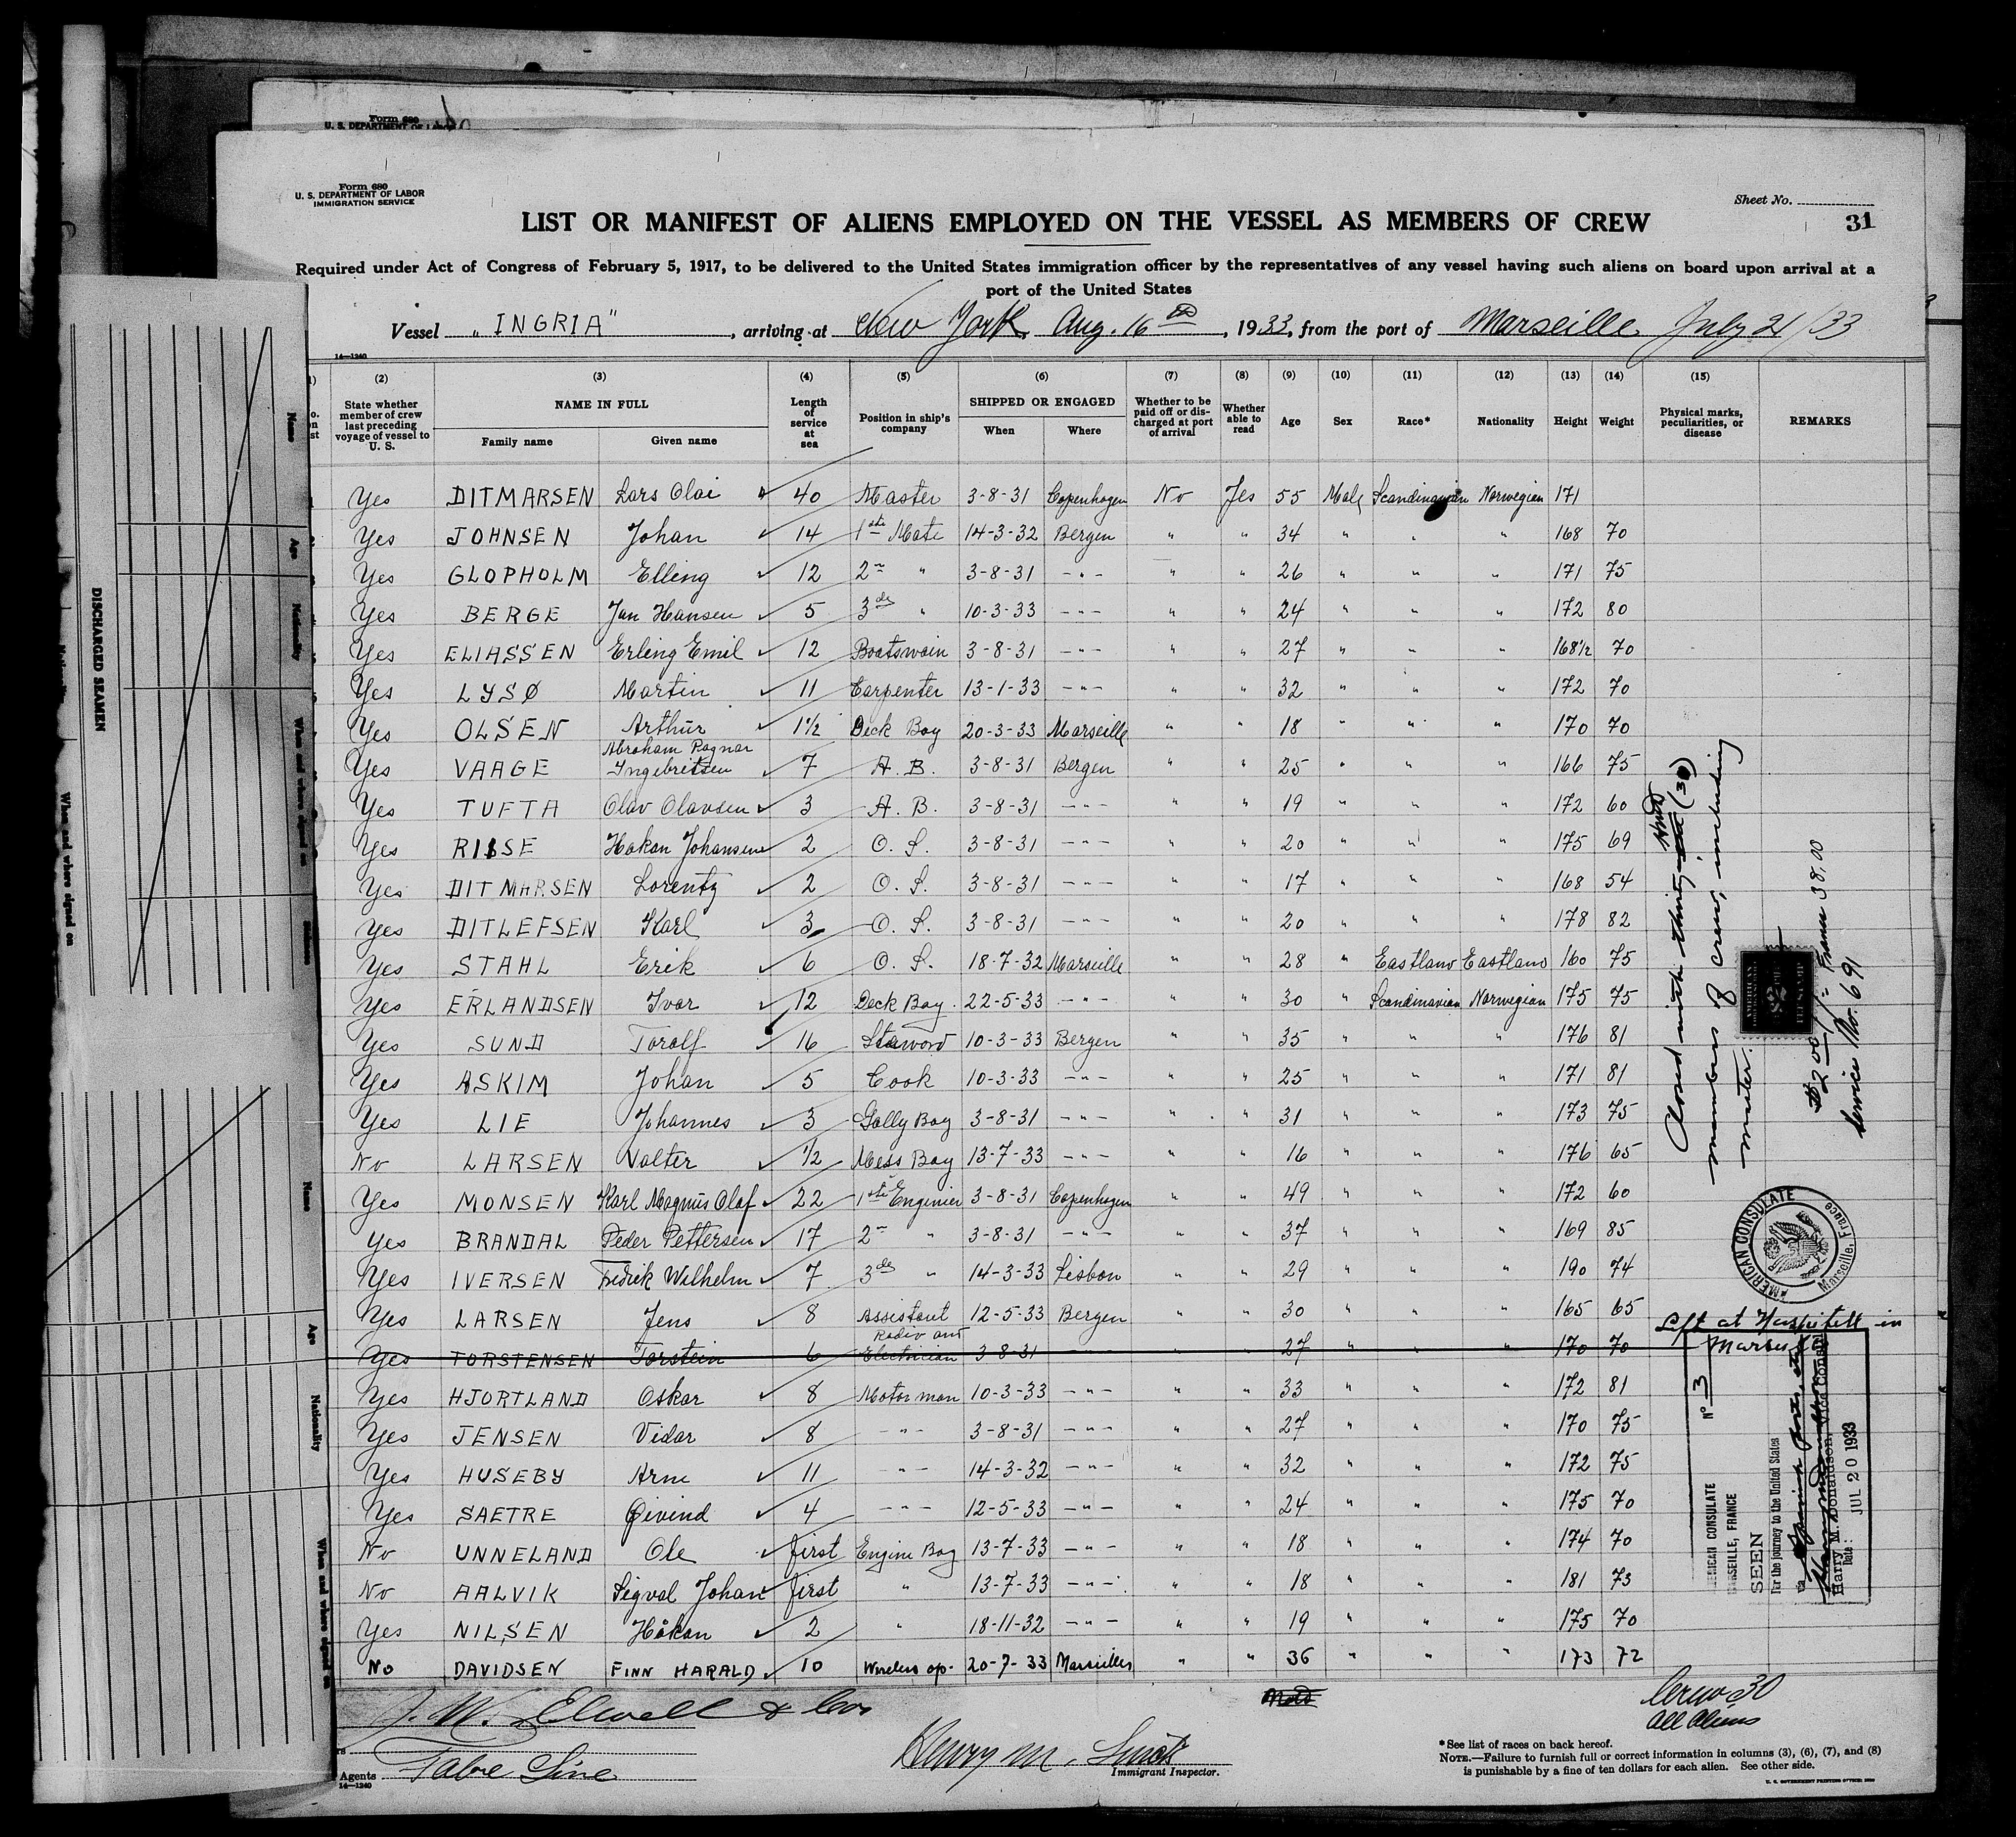 Form 680
U. S. DEPARTMENT OF LABOR
Form 680
U. S. DEPARTMENT OF LABOR
IMMIGRATION SERVICE
Sheet No.
31
LIST OR MANIFEST OF ALIENS EMPLOYED ON THE VESSEL AS MEMBERS OF CREW
Required under Act of Congress of February 5, 1917, to be delivered to the United States immigration officer by the representatives of any vessel having such aliens on board upon arrival at a
port of the United States
Vessel „INGRIA", arriving at New York, Aug. 16th, 1933, from the port of Marseille July 21/33
14—1240
(2) (3) (4) (5) (6) (7) (8) (9) (10) (11) (12) (13) (14) (15)
State whether member of crew last preceding voyage of vessel to U. S. NAME IN FULL Family name Given name Length of service at sea Position in ship's company SHIPPED OR ENGAGED When Where Whether to be paid off or discharged at port of arrival Whether able to read Age Sex Race* Nationality Height Weight Physical marks, peculiarities, or disease REMARKS
Yes DITMARSEN Lars Olai 40 Master 3-8-31 Copenhagen No Yes 55 Male Scandinavian Norwegian 171
Yes JOHNSEN Johan 14 1ste Mate 14-3-32 Bergen " " 34 " " " 168 70
Yes GLOPHOLM Elling 12 2n " 3-8-31 -"- " " 26 " " " 171 75
Yes BERGE Jan Hansen 5 3de " 10-3-33 -"- " " 24 " " " 172 80
Yes ELIASSEN Erling Emil 12 Boatswain 3-8-31 -"- " " 27 " " " 168½ 70
Yes LYSØ Martin 11 Carpenter 13-1-33 -"- " " 32 " " " 172 70
Yes OLSEN Arthur 1½ Deck Boy 20-3-33 Marseille " " 18 " " " 170 70
Yes VAAGE Abraham Ragnar Ingebretsen 7 A. B. 3-8-31 Bergen " " 25 " " " 166 75
Yes TUFTA Olav Olavsen 3 A. B. 3-8-31 -"- " " 19 " " " 172 60
Yes RIISE Hakan Johansen 2 O. S. 3-8-31 -"- " " 20 " " " 175 69
Yes DITMARSEN Lorentz 2 O. S. 3-8-31 -"- " " 17 " " " 168 54
Yes DITLEFSEN Karl 3 O. S. 3-8-31 -"- " " 20 " " " 178 82
Yes STAHL Erik 6 O. S. 18-7-32 Marseille " " 28 " Eastland Eastland 160 75
Yes ERLANDSEN Ivar 12 Deck Boy 22-5-33 -"- " " 30 " Scandinavian Norwegian 175 75
Yes SUND Toralf 16 Steward 10-3-33 Bergen " " 35 " " " 176 81
Yes ASKIM Johan 5 Cook 10-3-33 -"- " " 25 " " " 171 81
Yes LIE Johannes 3 Gally Boy 3-8-31 -"- " " 31 " " " 173 75
No LARSEN Valter ½ Mess Boy 13-7-33 -"- " " 16 " " " 176 65
Yes MONSEN Karl Magnus Olaf 22 1ste Enginier 3-8-31 Copenhagen " " 49 " " " 172 60
Yes BRANDAL Peder Pettersen 17 2n " 3-8-31 -"- " " 37 " " " 169 85
Yes IVERSEN Fredrik Wilhelm 7 3de " 14-3-33 Lisbon " " 29 " " " 190 74
Yes LARSEN Jens 8 Assistent 12-5-33 Bergen " " 30 " " " 165 65
Yes TORSTENSEN Torstein 6 Radio and Electrician 3-8-31 27 170 70
Yes HJORTLAND Oskar 8 Motorman 10-3-33 -"- " " 33 " " " 172 81
Yes JENSEN Vidar 8 -"- 3-8-31 -"- " " 27 " " " 170 75
Yes HUSEBY Arne 11 -"- 14-3-32 -"- " " 32 " " " 172 75
Yes SAETRE Øivind 4 -"- 12-5-33 -"- " " 24 " " " 175 70
No UNNELAND Ole first Engine Boy 13-7-33 -"- " " 18 " " " 174 70
No AALVIK Sigval Johan first " 13-7-33 -"- " " 18 " " " 181 73
Yes NILSEN Håkon 2 " 18-11-32 -"- " " 19 " " " 175 70
No DAVIDSEN FINN HARALD 10 Wireless op. 20-7-33 Marseilles " " 36 " " " 173 72
Closed with thirty (30)
members of crew, including
master.
$2.00 = Francs 38.00
Service No. 691
AMERICAN CONSULATE
Marseille, France
Left at Hospitall in
Marseille
Nº 3
AMERICAN CONSULATE
MARSEILLE, FRANCE
SEEN
For the journey to the United States
via Spanish ports, etc
Harry M. Donaldson, Vice Consul
Date: JUL 20 1933
J. W. Elwell & Co
Fabre Line
Agents
14—1240
Henry M.
Immigrant Inspector.
Crew 30
All Aliens
*See list of races on back hereof.
NOTE.—Failure to furnish full or correct information in columns (3), (6), (7), and (8)
is punishable by a fine of ten dollars for each alien. See other side.
U. S. GOVERNMENT PRINTING OFFICE
DISCHARGED SEAMEN
Name
Age
Nationality
When and where signed on
When and where signed on
Name
Age
Nationality
When and where signed on